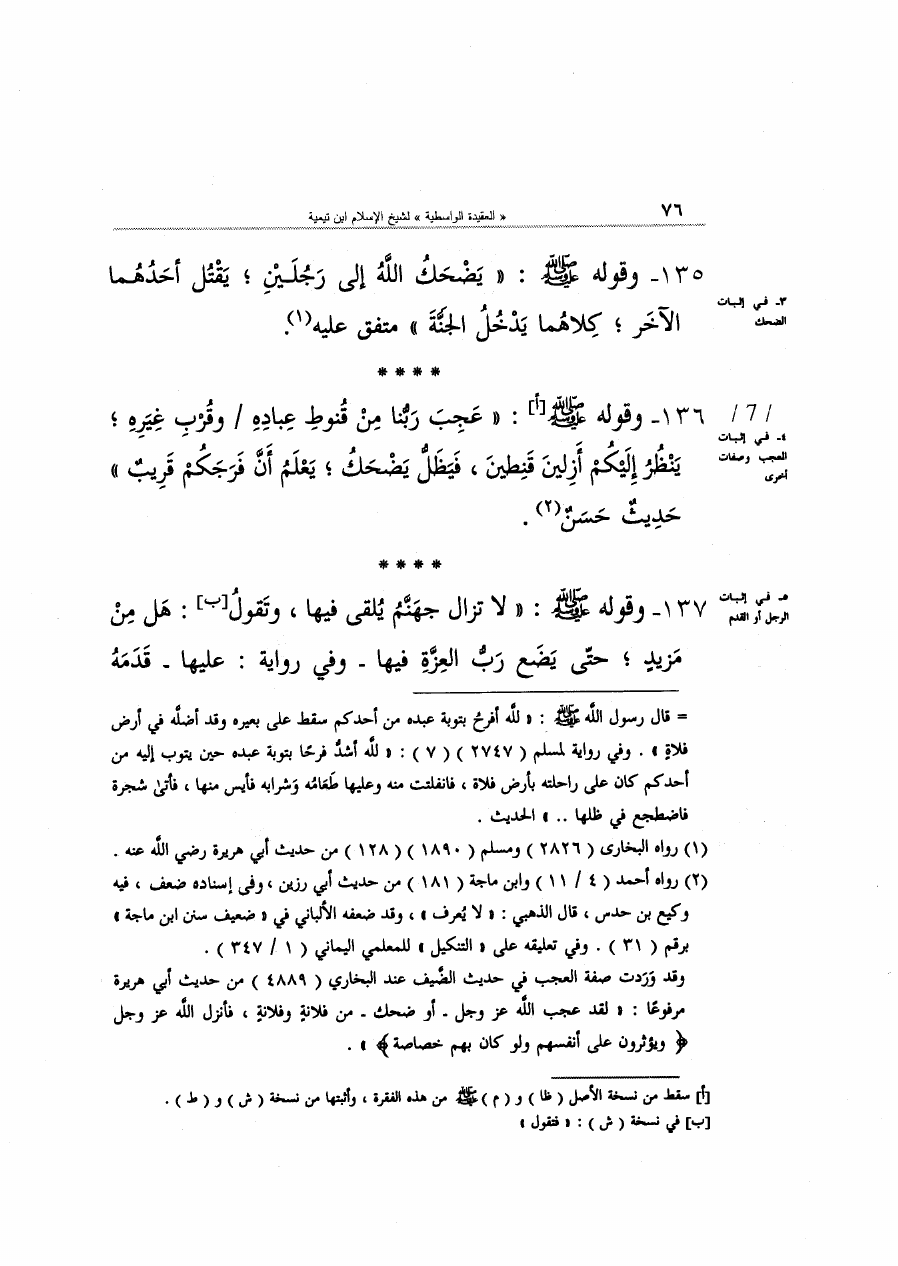 ٧٦
« العقيدة الواسطية » لشيخ الإسلام ابن تيمية
١٣٥ـ وقوله ﷺ : « يَضْحَكُ اللَّهُ إلى رَجُلَـيْنِ ؛ يَقْتُل أحَدُهُـما
٣ـ في إثبات
الضحك
الآخَر ؛ كِلاهُما يَدْخُلُ الجَنَّةَ » متفق عليه(١).
****
١٣٦ـ وقوله ﷺ[أ] : « عَجِبَ رَبُّنا مِنْ قُنوطِ عِبادِهِ / وقُرْبِ غِيَرِهِ ؛
/ 7 /
٤ـ في إثبات
العجب وصفات
أخرى
يَنْظُرُ إلَيْكُمْ أَزِلينَ قَنِطينَ ، فَيَظَلُّ يَضْحَكُ ؛ يَعْلَمُ أنَّ فَرَجَكُمْ قَرِيبٌ »
حَدِيثٌ حَسَنٌ(٢) .
****
١٣٧ـ وقوله ﷺ : « لا تزال جهَنَّمُ يُلقى فيها ، وتَقولُ[ب] : هَل مِنْ
٥ـ في إثبات
الرجل أو القدم
مَزيدِ ؛ حتّى يَضَع رَبُّ العِزَّةِ فيها ـ وفي رواية : عليها ـ قَدَمَهُ
= قال رسول اللَّه ﷺ : « للَّه أفرحُ بتوبة عبده من أحدكم سقط على بعيره وقد أضلَّه في أرض
فلاةٍ » . وفي رواية لمسلم ( ٢٧٤٧ ) ( ٧ ) : « للَّه أشدُّ فرحًا بتوبة عبده حين يتوب إليه من
أحدكم كان على راحلته بأرض فلاة ، فانفلتت منه وعليها طَعَامُه وَشرابه فأيس منها ، فأتىٰ شجرة
فاضطجع في ظلها .. » الحديث .
(١) رواه البخارى ( ٢٨٢٦ ) ومسلم ( ١٨٩٠ ) ( ١٢٨ ) من حديث أبي هريرة رضي اللَّه عنه .
(٢) رواه أحمد ( ٤ / ١١ ) وابن ماجة ( ١٨١ ) من حديث أبي رزين ، وفى إسناده ضعف ، فيه
وكيع بن حدس ، قال الذهبي : « لا يُعرف » ، وقد ضعفه الألباني في « ضعيف سنن ابن ماجة »
برقم ( ٣١ ) . وفي تعليقه على « التنكيل » للمعلمي اليماني ( ١ / ٣٤٧ ) .
وقد وَرَدت صفة العجب في حديث الضَّيف عند البخاري ( ٤٨٨٩ ) من حديث أبي هريرة
مرفوعًا : « لقد عجب اللَّه عز وجل ـ أو ضحك ـ من فلانةٍ وفلانةٍ ، فأنزل اللَّه عز وجل
﴿ ويؤثرون على أنفسهم ولو كان بهم خصاصة ﴾ » .
[أ] سقط من نسخة الأصل ( ظا ) و ( م ) ﷺ من هذه الفقرة ، وأثبتها من نسخة ( ش ) و ( ط ) .
[ب] في نسخة ( ش ) : « فتقول »